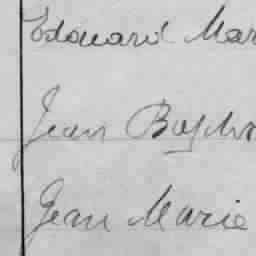 Edouard Mar
Jean Baptis
Jean Marie